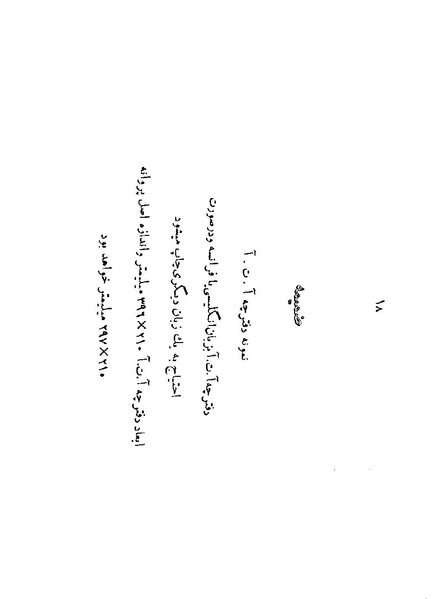 ۱۸
ضمیمه
نمونه دفترچه آ . ت . آ
دفترچه آ.ت.آ بزبان انگلیسی یا فرانسه و در صورت
احتیاج به یك زبان دیگری چاپ میشود
ابعاد دفترچه آ.ت.آ ۲۱۰ × ۳۹۶ میلیمتر و اندازه اصل پروانه
۲۱۰ × ۲۹۷ میلیمتر خواهد بود